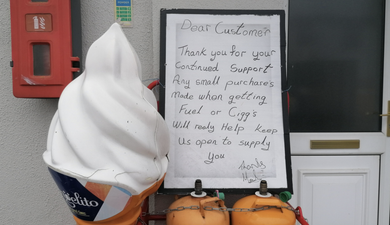 Dear Customer
Thank you for your
Continued Support
Any small purchases
Made when getting
Fuel or Cigg's
Will really Help Keep
Us open to supply
you
Thanks